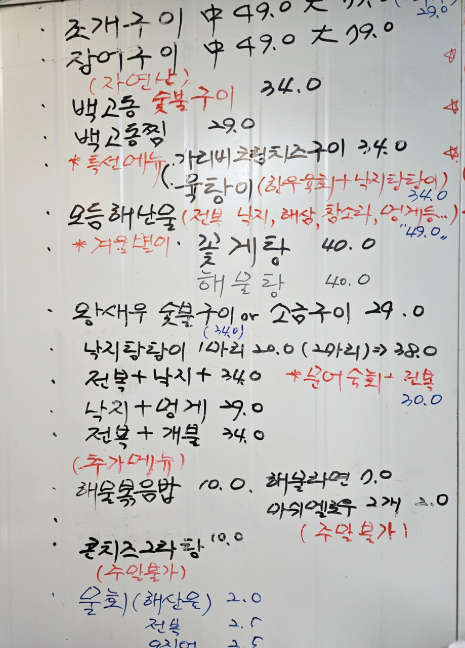 조개구이 中 49.0 大 79.0
29.0
장어구이 中 49.0 大 79.0
(자연산)
백고동 숯불구이 34.0
백고동찜 29.0
*특선메뉴 (·가리비크림치즈구이 34.0
·육탕이 (한우육회+낙지탕탕이)
34.0
모듬해산물 (전복, 낙지, 해삼, 참소라, 멍게등...)
"49.0"
*겨울별미· 꽃게탕 40.0
해물탕 40.0
왕새우 숯불구이 or 소금구이 29.0
(34.0)
낙지탕탕이 1마리 20.0 (2마리)⇒ 38.0
전복+낙지+ 34.0 *문어숙회+전복
30.0
낙지+멍게 29.0
전복+개불 34.0
(추가메뉴)
해물볶음밥 10.0. 해물라면 7.0
마쉬멜로우 2개 2.0
(주말불가)
콘치즈그라탕 10.0
(주말불가)
물회(해산물) 2.0
전복 2.5
2.5